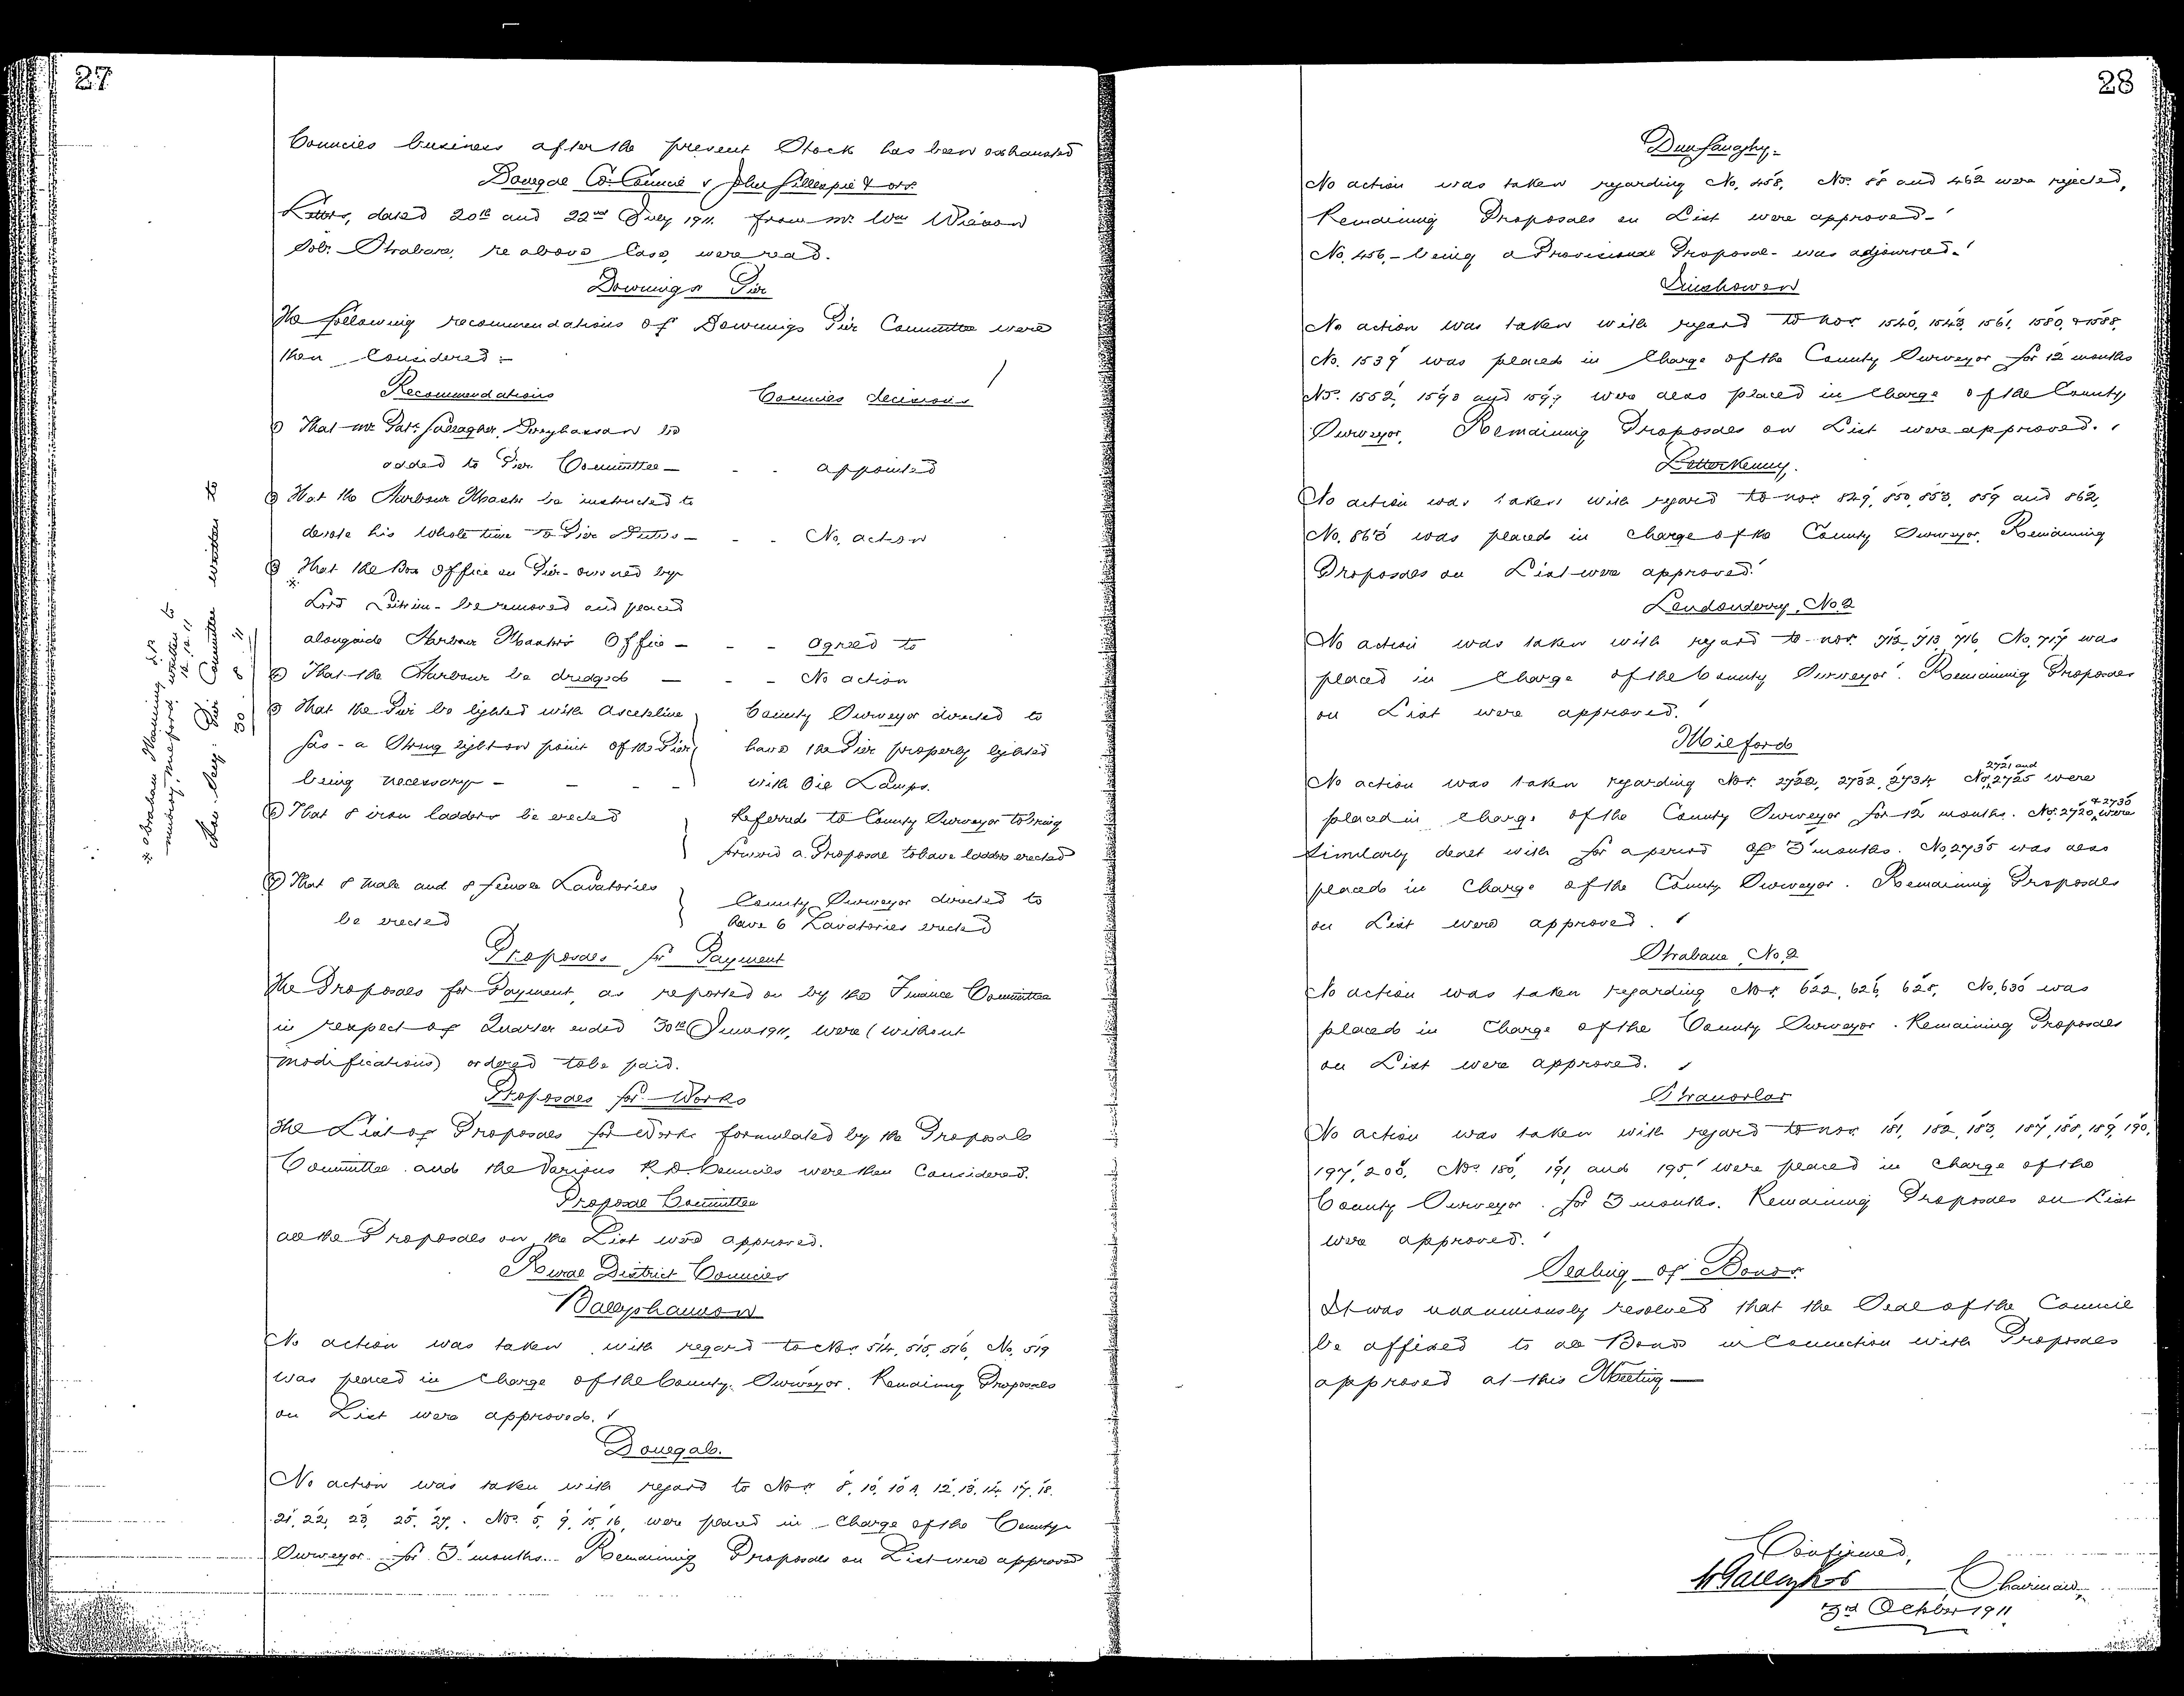 27
Councils business after the present Stock has been exhausted
Donegal Co. Council v John Gillespie & ors.
Letters, dated 20th and 22nd July 1911. from Mr. Wm Wilson
Solr. Strabane, re above Case, were read.
Downings Pier
The following recommendations of Downings Pier Committee were
then Considered:-
Recommendations
Councils decisions
(1) That Mr Patk. Gallagher, be
added to Pier Committee —
appointed
(2) That the Harbour Master be instructed to
devote his whole time to Pier Duties —
No action
(3) That the Box Office on Pier - owned by
Lord Leitrim - be removed and placed
alongside Harbour Master's Office —
agreed to
(4) That the Harbour be dredged —
No action
(5) That the Pier be lighted with Ascetyline
Gas - a Strong light on point of the Pier
being necessary —
County Surveyor directed to
have the Pier properly lighted
with Oil Lamps.
(6) That 8 iron ladders be erected
Referred to County Surveyor to bring
forward a Proposal to have ladders erected
(7) That 8 male and 8 female Lavatories
be erected
County Surveyor directed to
have 6 Lavatories erected
* Abraham Manning
Milford, written to
12.12.11
Hon. Secy. Pier Committee written to
30/8/11
Proposals for Payment
The Proposals for Payment, as reported on by the Finance Committee
in respect of Quarter ended 30th June 1911, were (without
modifications) ordered to be paid.
Proposals for Works
The List of Proposals for Works formulated by the Proposals
Committee and the Various R.D. Councils were then Considered.
Proposal Committee
All the Proposals on the List were approved.
Rural District Councils
Ballyshannon
No action was taken with regard to Nos. 514, 515, 516, No. 519
was placed in Charge of the County Surveyor. Remaining Proposals
on List were approved.
Donegal.
No action was taken with regard to Nos. 8, 10, 10A, 12, 13, 14, 17, 18.
21, 22, 23, 25, 27. Nos. 5, 9, 15, 16, were placed in Charge of the County
Surveyor for 3 months. Remaining Proposals on List were approved
28
Dunfanaghy.
No action was taken regarding No. 458. Nos. 88 and 462 were rejected,
Remaining Proposals on List were approved.
No. 456, - being a Provisional Proposal - was adjourned.
Inishowen
No action was taken with regard to nos. 1540, 1543, 1561, 1580, & 1588.
No. 1539 was placed in Charge of the County Surveyor for 12 months
Nos. 1552, 1590 and 1599 were also placed in Charge of the County
Surveyor. Remaining Proposals on List were approved.
Letterkenny.
No action was taken with regard to nos. 829, 850, 853, 859 and 862,
No. 863 was placed in charge of the County Surveyor. Remaining
Proposals on List were approved.
Londonderry, No. 2
No action was taken with regard to nos. 712, 713, 716, No. 717 was
placed in Charge of the County Surveyor. Remaining Proposals
on List were approved.
Milford
No action was taken regarding Nos. 2722, 2732, 2734, Nos. 2721 and 2725 were
placed in Charge of the County Surveyor for 12 months. Nos. 2720 & 2730 were
similarly dealt with for a period of 3 months. No. 2735 was also
placed in Charge of the County Surveyor. Remaining Proposals
on List were approved.
Strabane, No. 2
No action was taken regarding Nos. 622, 626, 628, No. 630 was
placed in Charge of the County Surveyor. Remaining Proposals
on List were approved.
Stranorlar
No action was taken with regard to nos. 181, 182, 183, 187, 188, 189, 190,
197, 208, Nos. 180, 191 and 195 were placed in charge of the
County Surveyor for 3 months. Remaining Proposals on List
were approved.
Sealing of Bonds
It was unanimously resolved that the Seal of the Council
be affixed to all Bonds in Connection with Proposals
approved at this Meeting —
Confirmed,
Chairman,
3rd October 1911